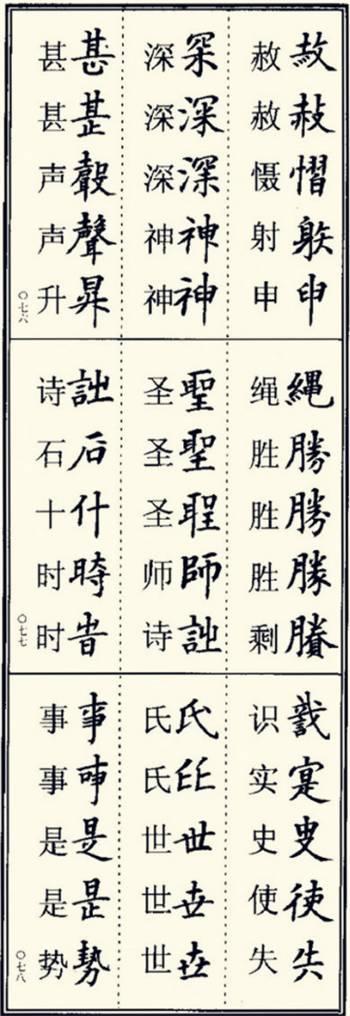 慴申
赦赦慑射申
罙深深神神
深深深神神
甚聲昇
甚甚声声升
〇七六
繩勝勝勝
绳胜胜胜剩
聖聖師
圣圣圣师诗
石什時旹
诗石十时时
〇七七
寔使失
识实史使失
氏世
氏氏世世世
事是昰勢
事事是是势
〇七八